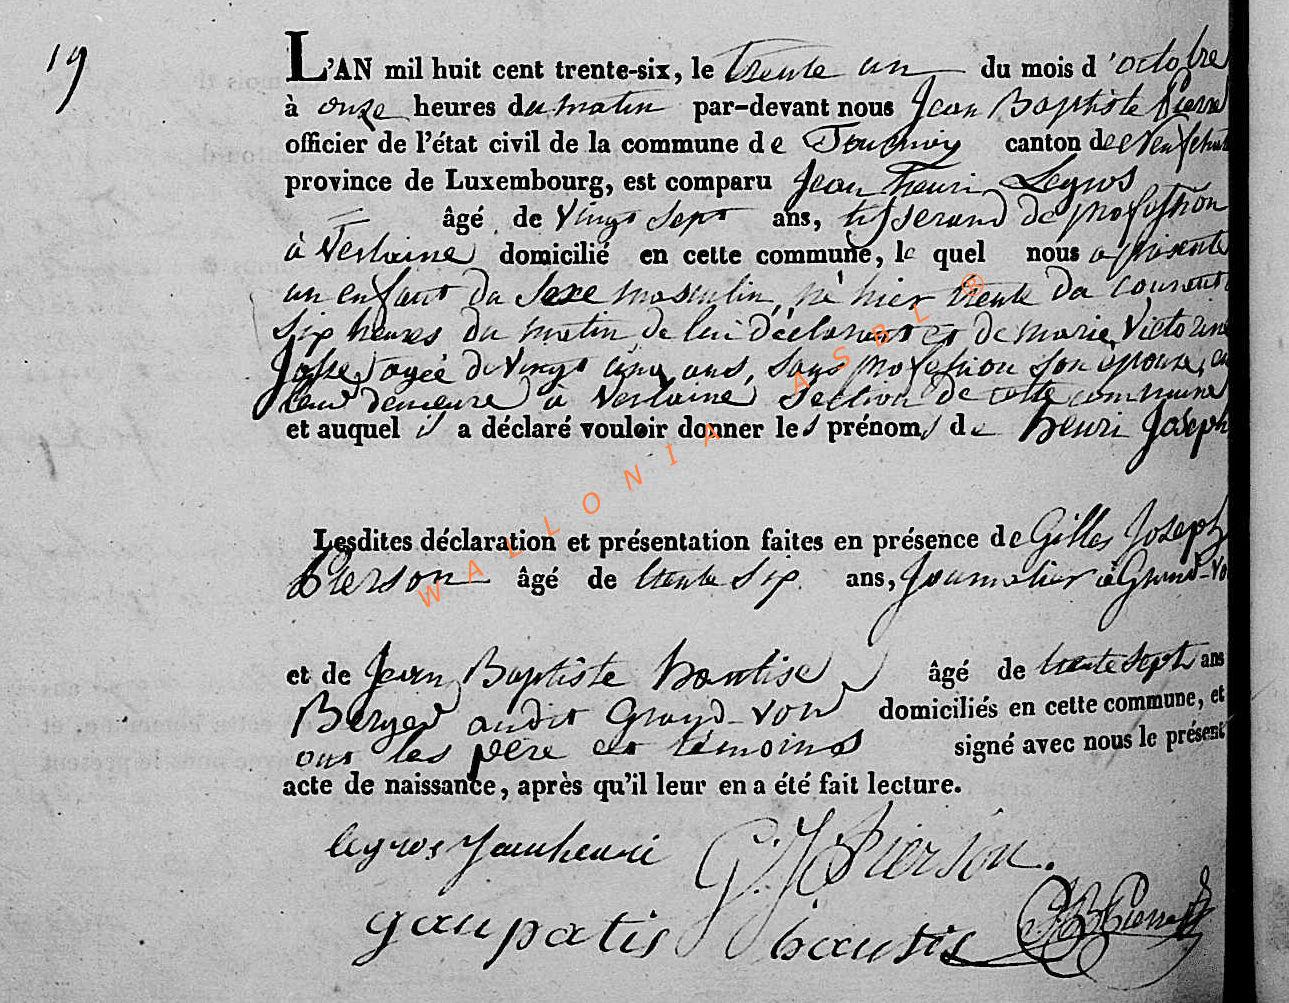 19
L'AN mil huit cent trente-six, le trente un du mois d'octobre
à onze heures du matin par-devant nous Jean Baptiste Pierre
officier de l'état civil de la commune de Tournay canton de Neufchat
province de Luxembourg, est comparu Jean Henri Legros
âgé de vingt sept ans, tisserand de profession
à Verlaine domicilié en cette commune, le quel nous a présenté
un enfant du sexe masculin, né hier trente du courant
six heures du matin, de lui déclarant et de marie Victorine
agée de vingt cinq ans, sans profession son épouse, en
leur demeure à Verlaine section de cette commune
et auquel il a déclaré vouloir donner les prénoms de henri Joseph
Lesdites déclaration et présentation faites en présence de Gilles Joseph
Pierson âgé de trente six ans, Journalier à Grand-Vo
et de Jean Baptiste hautise âgé de trente sept ans
Berger audit Grand-Voir domiciliés en cette commune, et
ont les père et témoins signé avec nous le présent
acte de naissance, après qu'il leur en a été fait lecture.
legros jeanhenri G. J. Pierson.
gaupatis hautis JB Pierre
WALLONIA ASBL ®